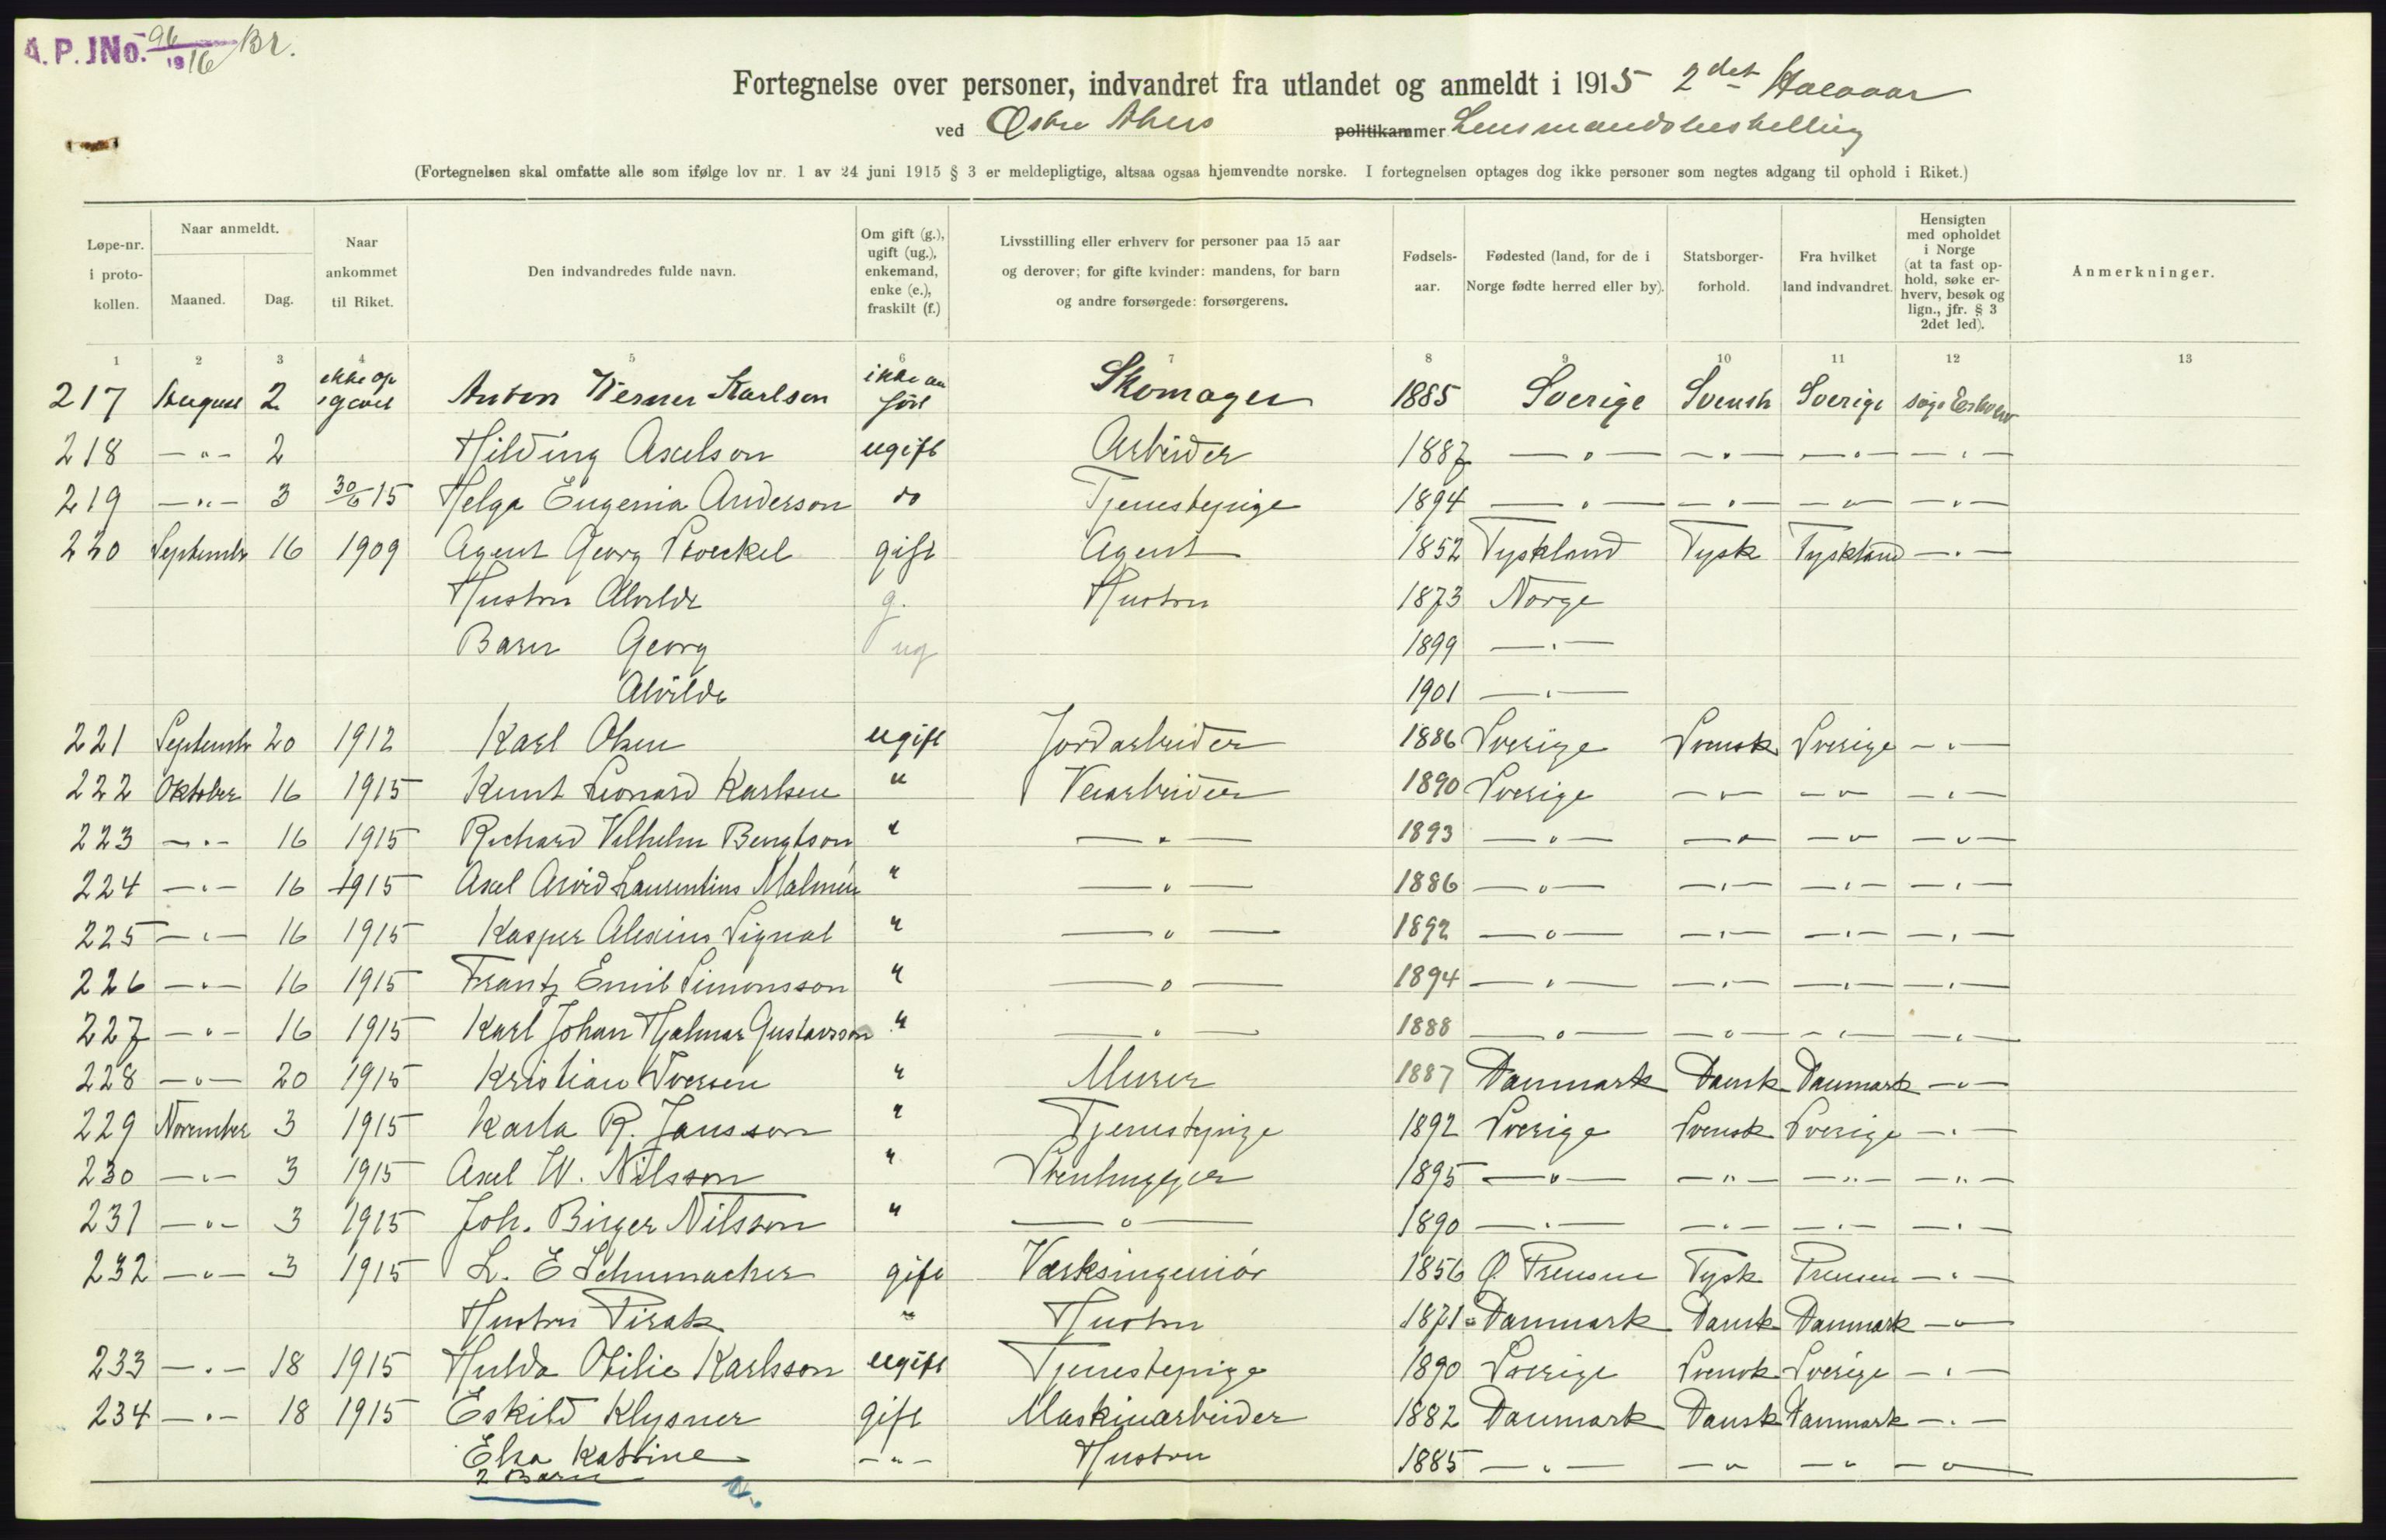 A. P. JNo. 96/1916 Br.
Fortegnelse over personer, indvandret fra utlandet og anmeldt i 1915 2det Halvaar
ved Østre Akers politikammer Lensmandsbestilling
(Fortegnelsen skal omfatte alle som ifølge lov nr. 1 av 24 juni 1915 § 3 er meldepligtige, altsaa ogsaa hjemvendte norske. I fortegnelsen optages dog ikke personer som negtes adgang til ophold i Riket.)
Løpe-nr. i proto-kollen. Naar anmeldt. Maaned. Dag. Naar ankommet til Riket. Den indvandredes fulde navn. Om gift (g.), ugift (ug.), enkemand, enke (e.), fraskilt (f.) Livsstilling eller erhverv for personer paa 15 aar og derover; for gifte kvinder: mandens, for barn og andre forsørgede: forsørgerens. Fødsels-aar. Fødested (land, for de i Norge fødte herred eller by). Statsborger-forhold. Fra hvilket land indvandret. Hensigten med opholdet i Norge (at ta fast op-hold, søke er-hverv, besøk og lign., jfr. § 3 2det led). Anmerkninger.
1 2 3 4 5 6 7 8 9 10 11 12 13
217 August 2 ikke op igivet Anton Werner Karlson ikke an ført Skomager 1885 Sverige Svensk Sverige søge Erhverv
218 -"- 2 Hilding Axelson ugift Arbeider 1887 -"- -"- -"- -"-
219 -"- 3 30/6 15 Helga Eugenia Anderson do Tjenestepige 1894 -"- -"- -"- -"-
220 Septembr 16 1909 Agent Georg Stoeckel gift Agent 1852 Tyskland Tysk Tyskland -"-
Hustru Alvilde g. Hustru 1873 Norge
Barn Georg ug 1899 -"-
Alvilde 1901 -"-
221 Septembr 20 1912 Karl Olsen ugift Jordarbeider 1886 Sverige Svensk Sverige -"-
222 Oktober 16 1915 Knut Leonard Karlsen " Veiarbeider 1890 Sverige -"- -"- -"-
223 -"- 16 1915 Richard Vilhelm Bengtson " -"- 1893 -"- -"- -"- -"-
224 -"- 16 1915 Axel Arvid Laurentius Malmén " -"- 1886 -"- -"- -"- -"-
225 -"- 16 1915 Kasper Alexius Signal " -"- 1892 -"- -"- -"- -"-
226 -"- 16 1915 Frantz Emil Simonsson " -"- 1894 -"- -"- -"- -"-
227 -"- 16 1915 Karl Johan Hjalmar Gustavsson " -"- 1888 -"- -"- -"- -"-
228 -"- 20 1915 Kristian Iversen " Murer 1887 Danmark Dansk Danmark -"-
229 November 3 1915 Karla R. Jansson " Tjenestepige 1892 Sverige Svensk Sverige -"-
230 -"- 3 1915 Axel W. Nilsson " Stenhugger 1895 -"- -"- -"- -"-
231 -"- 3 1915 Joh. Birger Nilsson " -"- 1890 -"- -"- -"- -"-
232 -"- 3 1915 L. E Schumacher gift Værksingeniør 1856 Ø. Preusen Tysk Preusen -"-
Hustru " Hustru 1871 Danmark Dansk Danmark -"-
233 -"- 18 1915 Hulda Otilie Karlsson ugift Tjenestepige 1890 Sverige Svensk Sverige -"-
234 -"- 18 1915 Eskild Klysner gift Maskinarbeider 1882 Danmark Dansk Danmark -"-
Elsa Katrine -"- Hustru 1885 -"- -"- -"- -"-
2 Barn